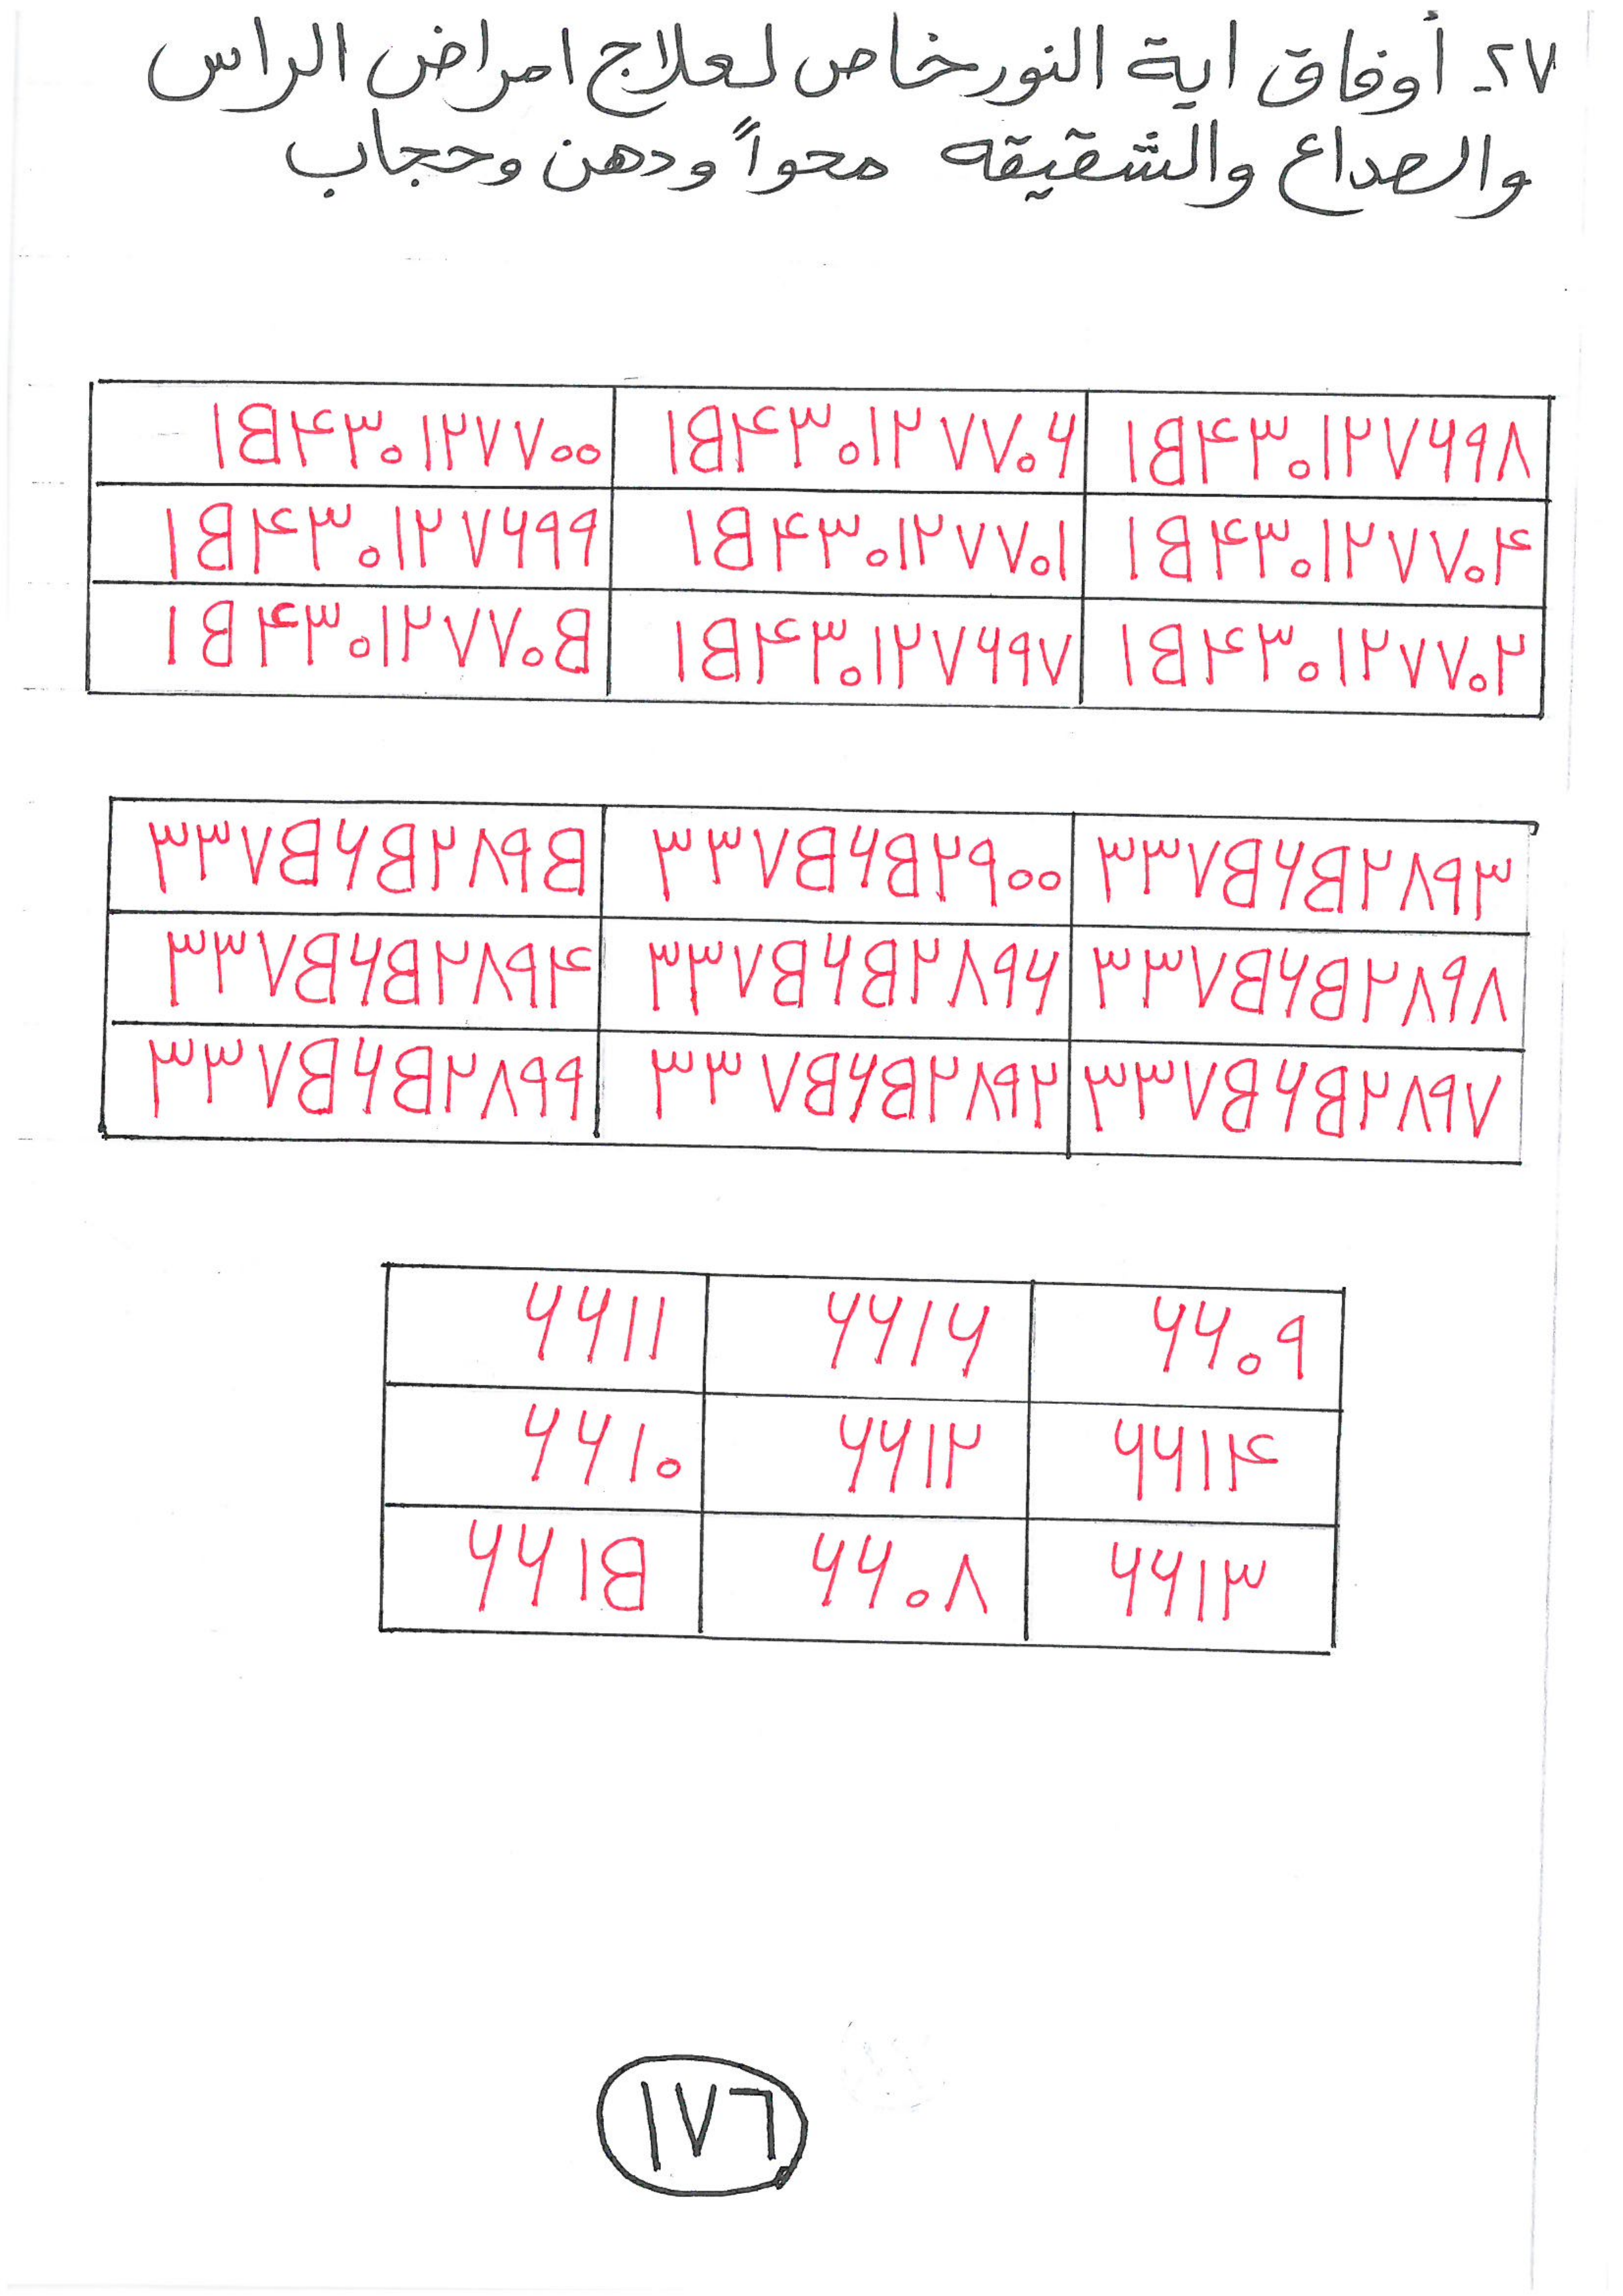 ٢٧- أوفاق اية النور خاص لعلاج امراض الراس
والصداع والشقيقه محواً ودهن وحجاب
١٥٤٣٠١٢٧٦٩٨ ١٥٤٣٠١٢٧٧٠٦ ١٥٤٣٠١٢٧٧٠٠
١٥٤٣٠١٢٧٧٠٤ ١٥٤٣٠١٢٧٧٠١ ١٥٤٣٠١٢٧٦٩٩
١٥٤٣٠١٢٧٧٠٢ ١٥٤٣٠١٢٧٦٩٧ ١٥٤٣٠١٢٧٧٠٥
٣٣٧٥٦٥٢٨٩٣ ٣٣٧٥٦٥٢٩٠٠ ٣٣٧٥٦٥٢٨٩٥
٣٣٧٥٦٥٢٨٩٨ ٣٣٧٥٦٥٢٨٩٦ ٣٣٧٥٦٥٢٨٩٤
٣٣٧٥٦٥٢٨٩٧ ٣٣٧٥٦٥٢٨٩٢ ٣٣٧٥٦٥٢٨٩٩
٦٦٠٩ ٦٦١٦ ٦٦١١
٦٦١٤ ٦٦١٢ ٦٦١٠
٦٦١٣ ٦٦٠٨ ٦٦١٥
١٧٦